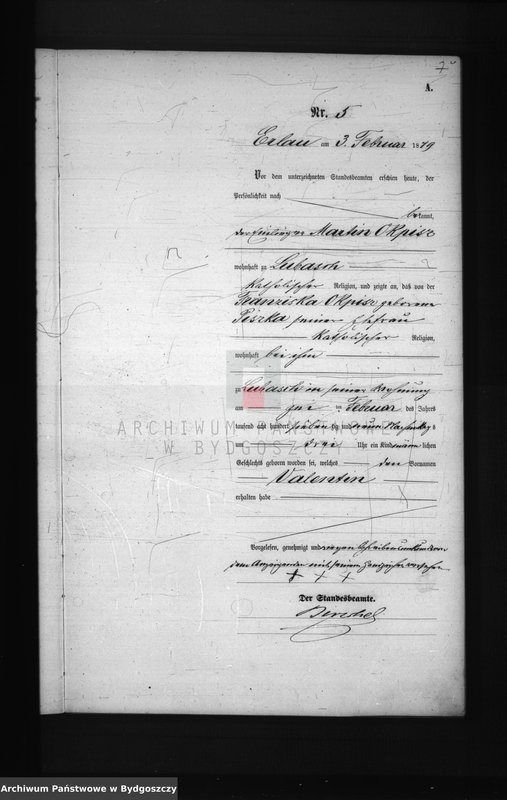 7
A.
Nr. 5
Erlau am 3. Februar 1879
Vor dem unterzeichneten Standesbeamten erschien heute, der
Persönlichkeit nach
bekannt,
der Einlieger Martin Okpisz
wohnhaft zu Lubasch
katholischer Religion, und zeigte an, daß von der
Franziska Okpisz geborene
Piszka seiner Ehefrau
katholischer Religion,
wohnhaft bei ihm
zu Lubasch in seiner Wohnung
am Februar des Jahres
tausend acht hundert sieben zig und neun Nachmittags
um drei Uhr ein Kind männlichen
Geschlechts geboren worden sei, welches den Vornamen
Valentin
erhalten habe
Vorgelesen, genehmigt und wegen Schreibensunkunde von
dem Anzeigenden mit seinem Handzeichen versehen
+ + +
Der Standesbeamte.
ARCHIWUM PAŃSTWOWE
W BYDGOSZCZY
Archiwum Państwowe w Bydgoszczy